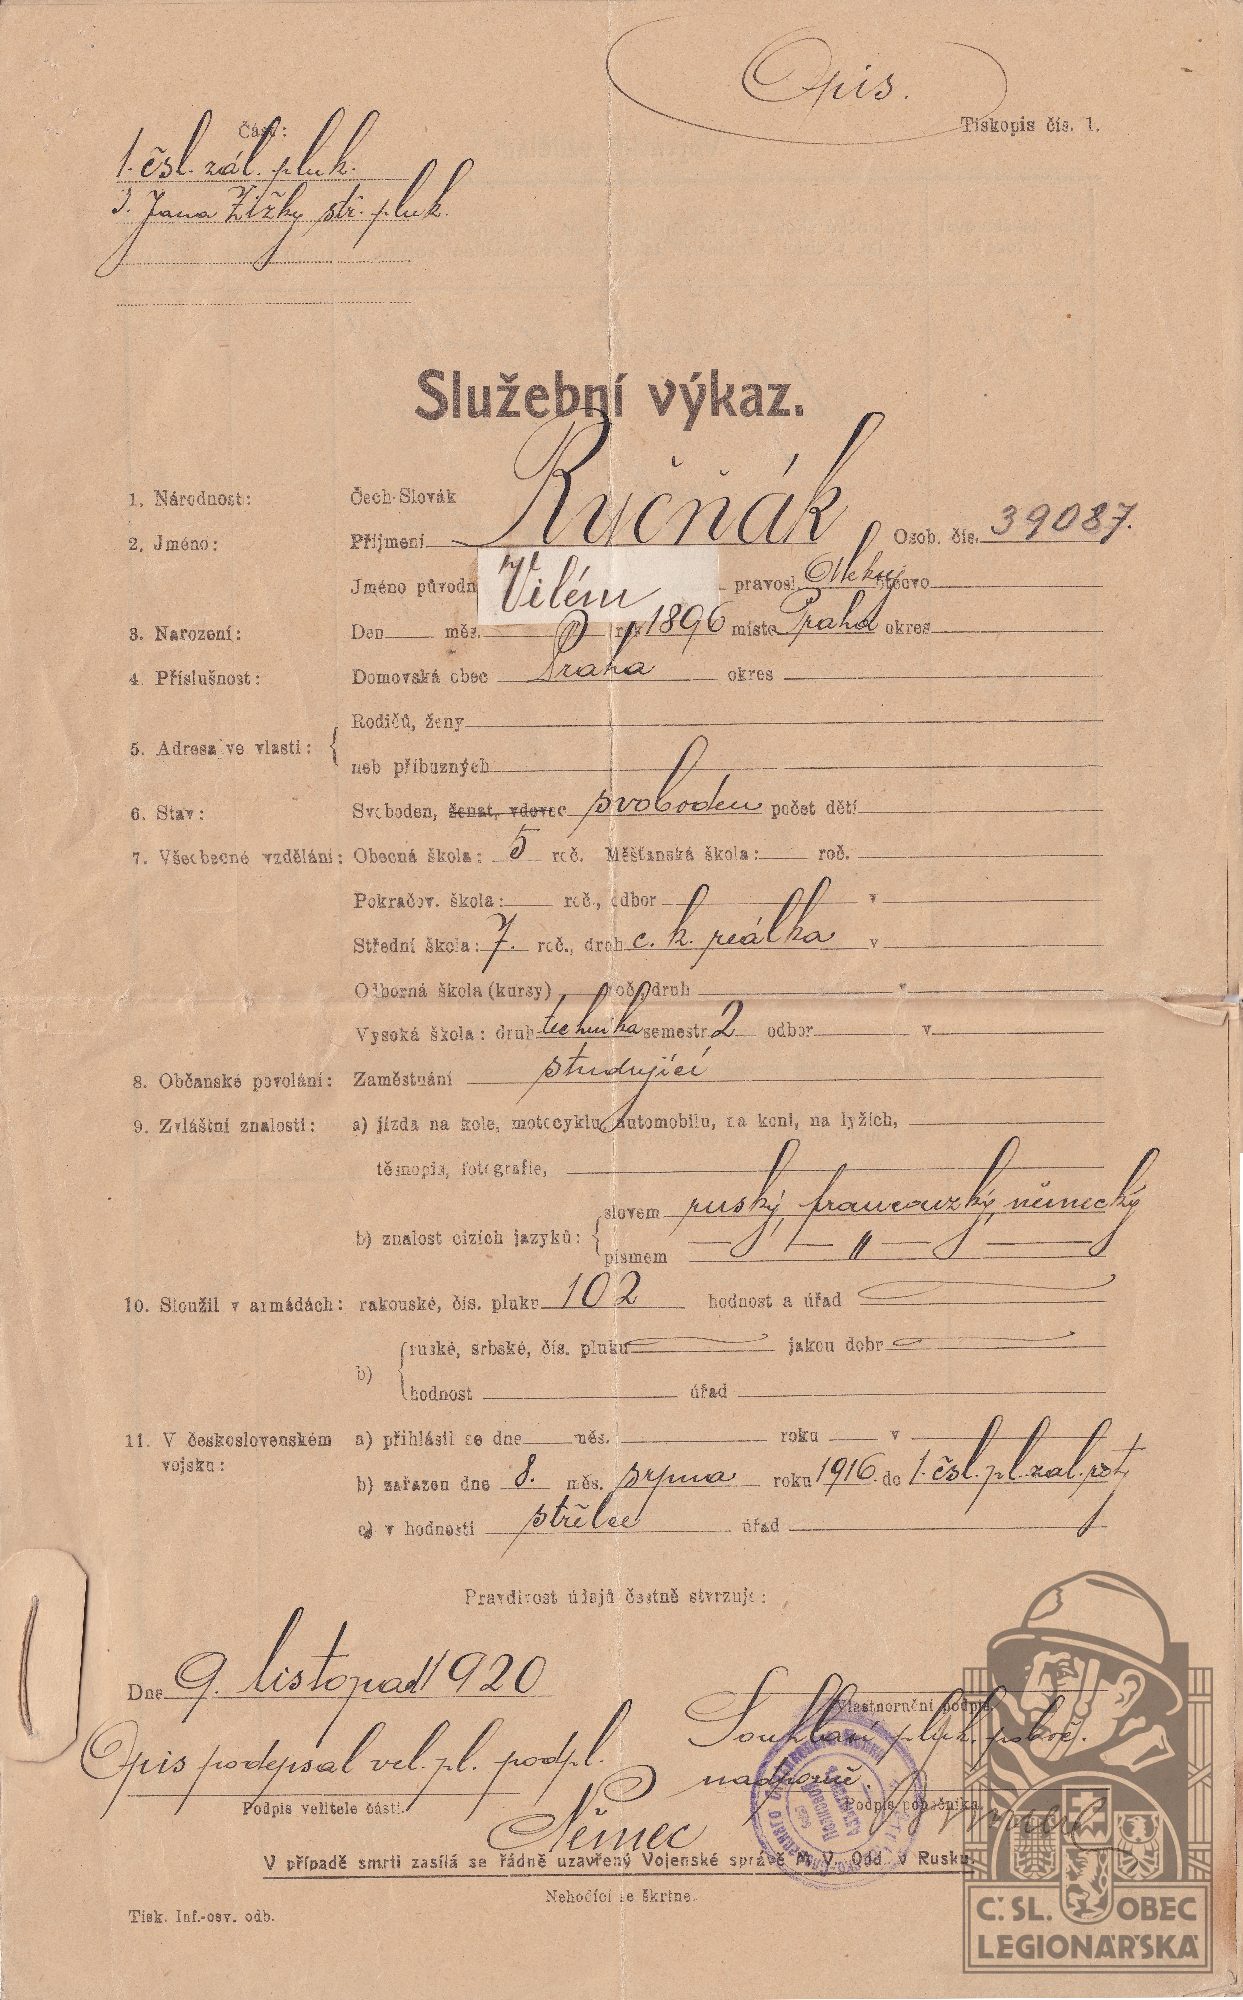 Opis.
Část:
Tiskopis čís. 1.
1. čsl. zál. pluk.
3. Jana Žižky stř. pluk.
Služební výkaz.
1. Národnost: Čech-Slovák
2. Jméno: Příjmení Ryčňák Osob. čís. 39087.
Jméno původn Vilém pravosl. otecvo
3. Narození: Den měs. rok 1896 místo Praha okres
4. Příslušnost: Domovská obec Praha okres
5. Adresa ve vlasti: Rodičů, ženy
neb příbuzných
6. Stav: Svoboden, ženat, vdovec svoboden počet dětí
7. Všeobecné vzdělání: Obecná škola: 5 roč. Měšťanská škola: roč.
Pokračov. škola: roč., odbor v
Střední škola: 7. roč., druh c. k. reálka v
Odborná škola (kursy) roč., druh v
Vysoká škola: druh technika semestr 2 odbor v
8. Občanské povolání: Zaměstnání studující
9. Zvláštní znalosti: a) jízda na kole, motocyklu, automobilu, na koni, na lyžích,
těsnopis, fotografie,
b) znalost cizích jazyků: slovem ruský, francouzský, německý
písmem — " —
10. Sloužil v armádách: rakouské, čís. pluku 102 hodnost a úřad
b) ruské, srbské, čís. pluku jakou dobr
hodnost úřad
11. V československém vojsku: a) přihlásil se dne měs. roku v
b) zařazen dne 8. měs. srpna roku 1916 do 1. čsl. pl. zal. roty
c) v hodnosti střelec úřad
Pravdivost údajů čestně stvrzuje:
Dne 9. listopad 1920
Vlastnoruční podpis
Souhlasí pluk. poboč.
Opis podepsal vel. pl. podpl. nadporuč.
Podpis velitele části. Podpis pobočníka
Němec
V případě smrti zasílá se řádně uzavřený Vojenské správě M. V. Odd. v Rusku.
Nehodící se škrtne.
Tisk. Inf.-osv. odb.
Č. SL. OBEC
LEGIONÁŘSKÁ